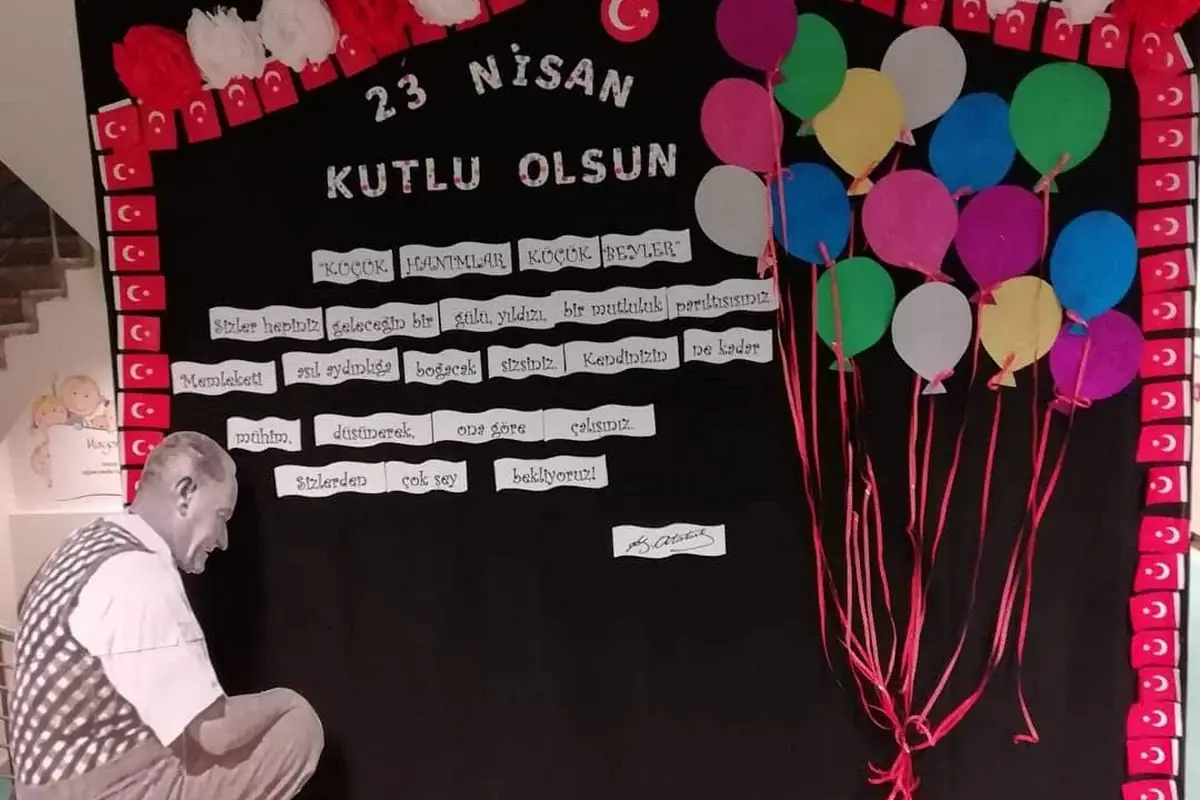 23 NİSAN
KUTLU OLSUN
"KÜÇÜK HANIMLAR KÜÇÜK BEYLER"
Sizler hepiniz geleceğin bir gülü, yıldızı, bir mutluluk parıltısısınız.
Memleketi asıl aydınlığa boğacak sizsiniz. Kendinizin ne kadar
mühim, düşünerek, ona göre çalışınız.
Sizlerden çok şey bekliyoruz!
K. Atatürk